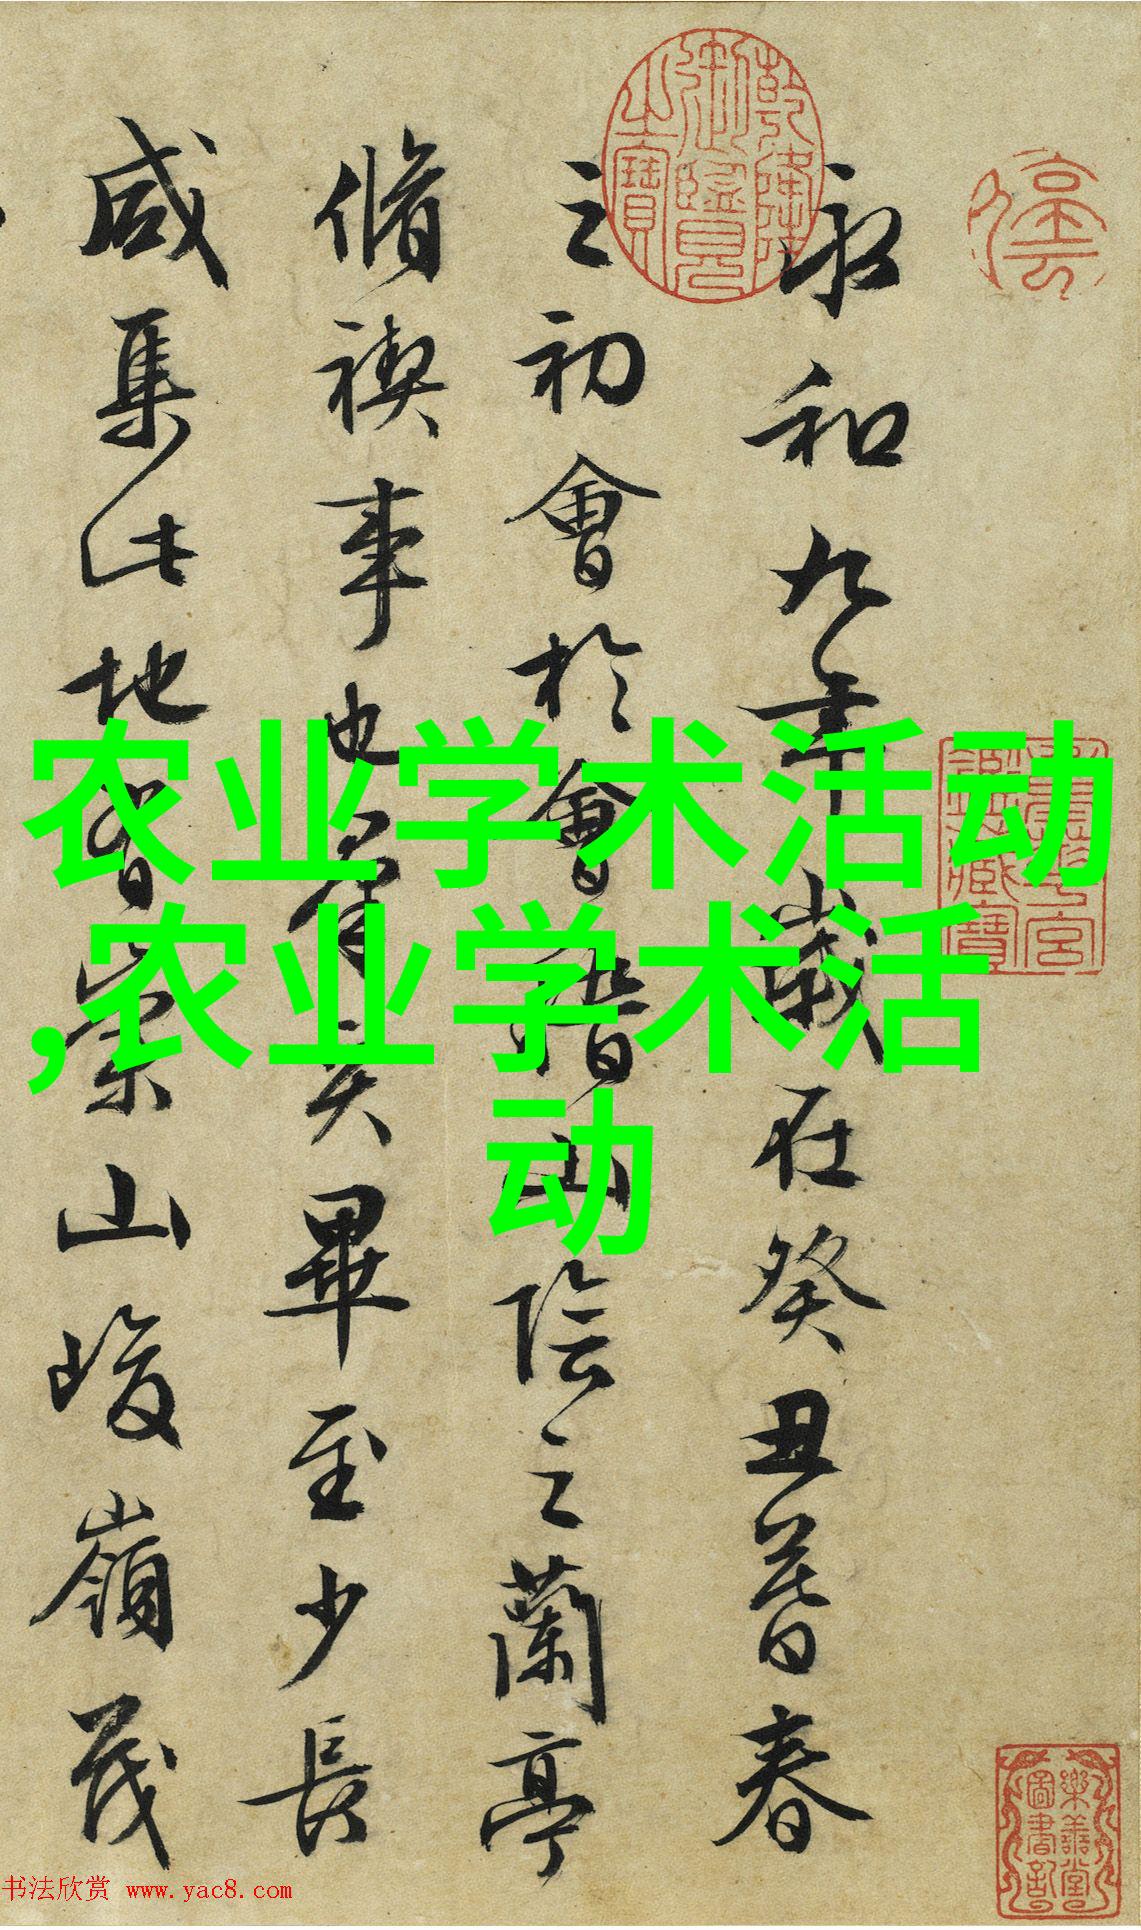 永和九年歲在癸丑暮春
之初會於會稽山陰之蘭亭
脩禊事也羣賢畢至少長
咸集此地有崇山峻嶺茂
農业学术活动
,农业学术活
动
乾隆御覽之寶
樂善堂圖書記
书法欣赏 www.yac8.com